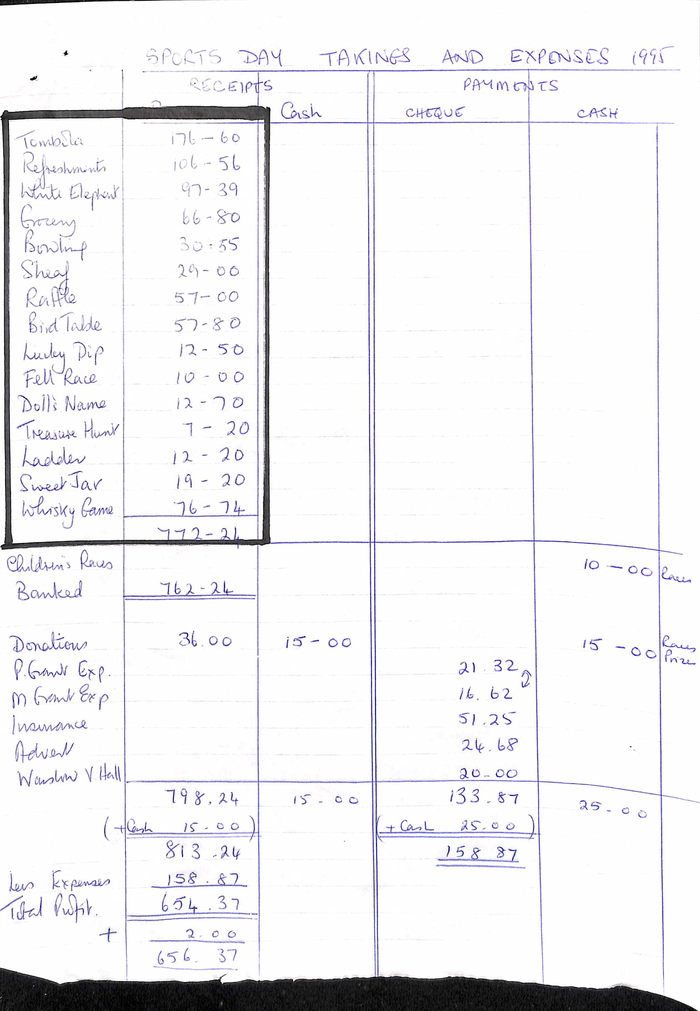 SPORTS DAY TAKINGS AND EXPENSES 1995
RECEIPTS PAYMENTS
Cash CHEQUE CASH
Tombola 176-60
Refreshments 106-56
White Elephant 97-39
Grocery 66-80
Bowling 30-55
Sheaf 29-00
Raffle 57-00
Bird Table 57-80
Lucky Dip 12-50
Fell Race 10-00
Doll's Name 12-70
Treasure Hunt 7-20
Ladder 12-20
Sweet Jar 19-20
Whisky Game 76-74
772-24
Children's Races 10-00 Races
Banked 762-24
Donations 36.00 15-00 15-00 Races Prize
P. Grant Exp. 21.32
M Grant Exp 16.62
Insurance 51.25
Advert 24.68
V Hall 20-00
798.24 15-00 133.87 25.00
(+Cash 15.00) (+Cash 25.00)
813.24 158 87
Less Expenses 158.87
Total Profit. 654.37
+ 2.00
656.37